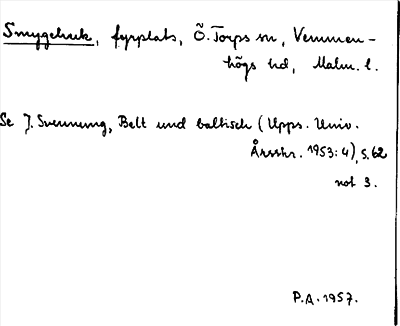 Smygehuk, fyrplats, Ö. Torps sn, Vemmen-
högs hd, Malm. l.
Se J. Svennung, Belt und baltisch (Upps. Univ.
Årsskr. 1953:4), s. 62
not 3.
P.A. 1957.